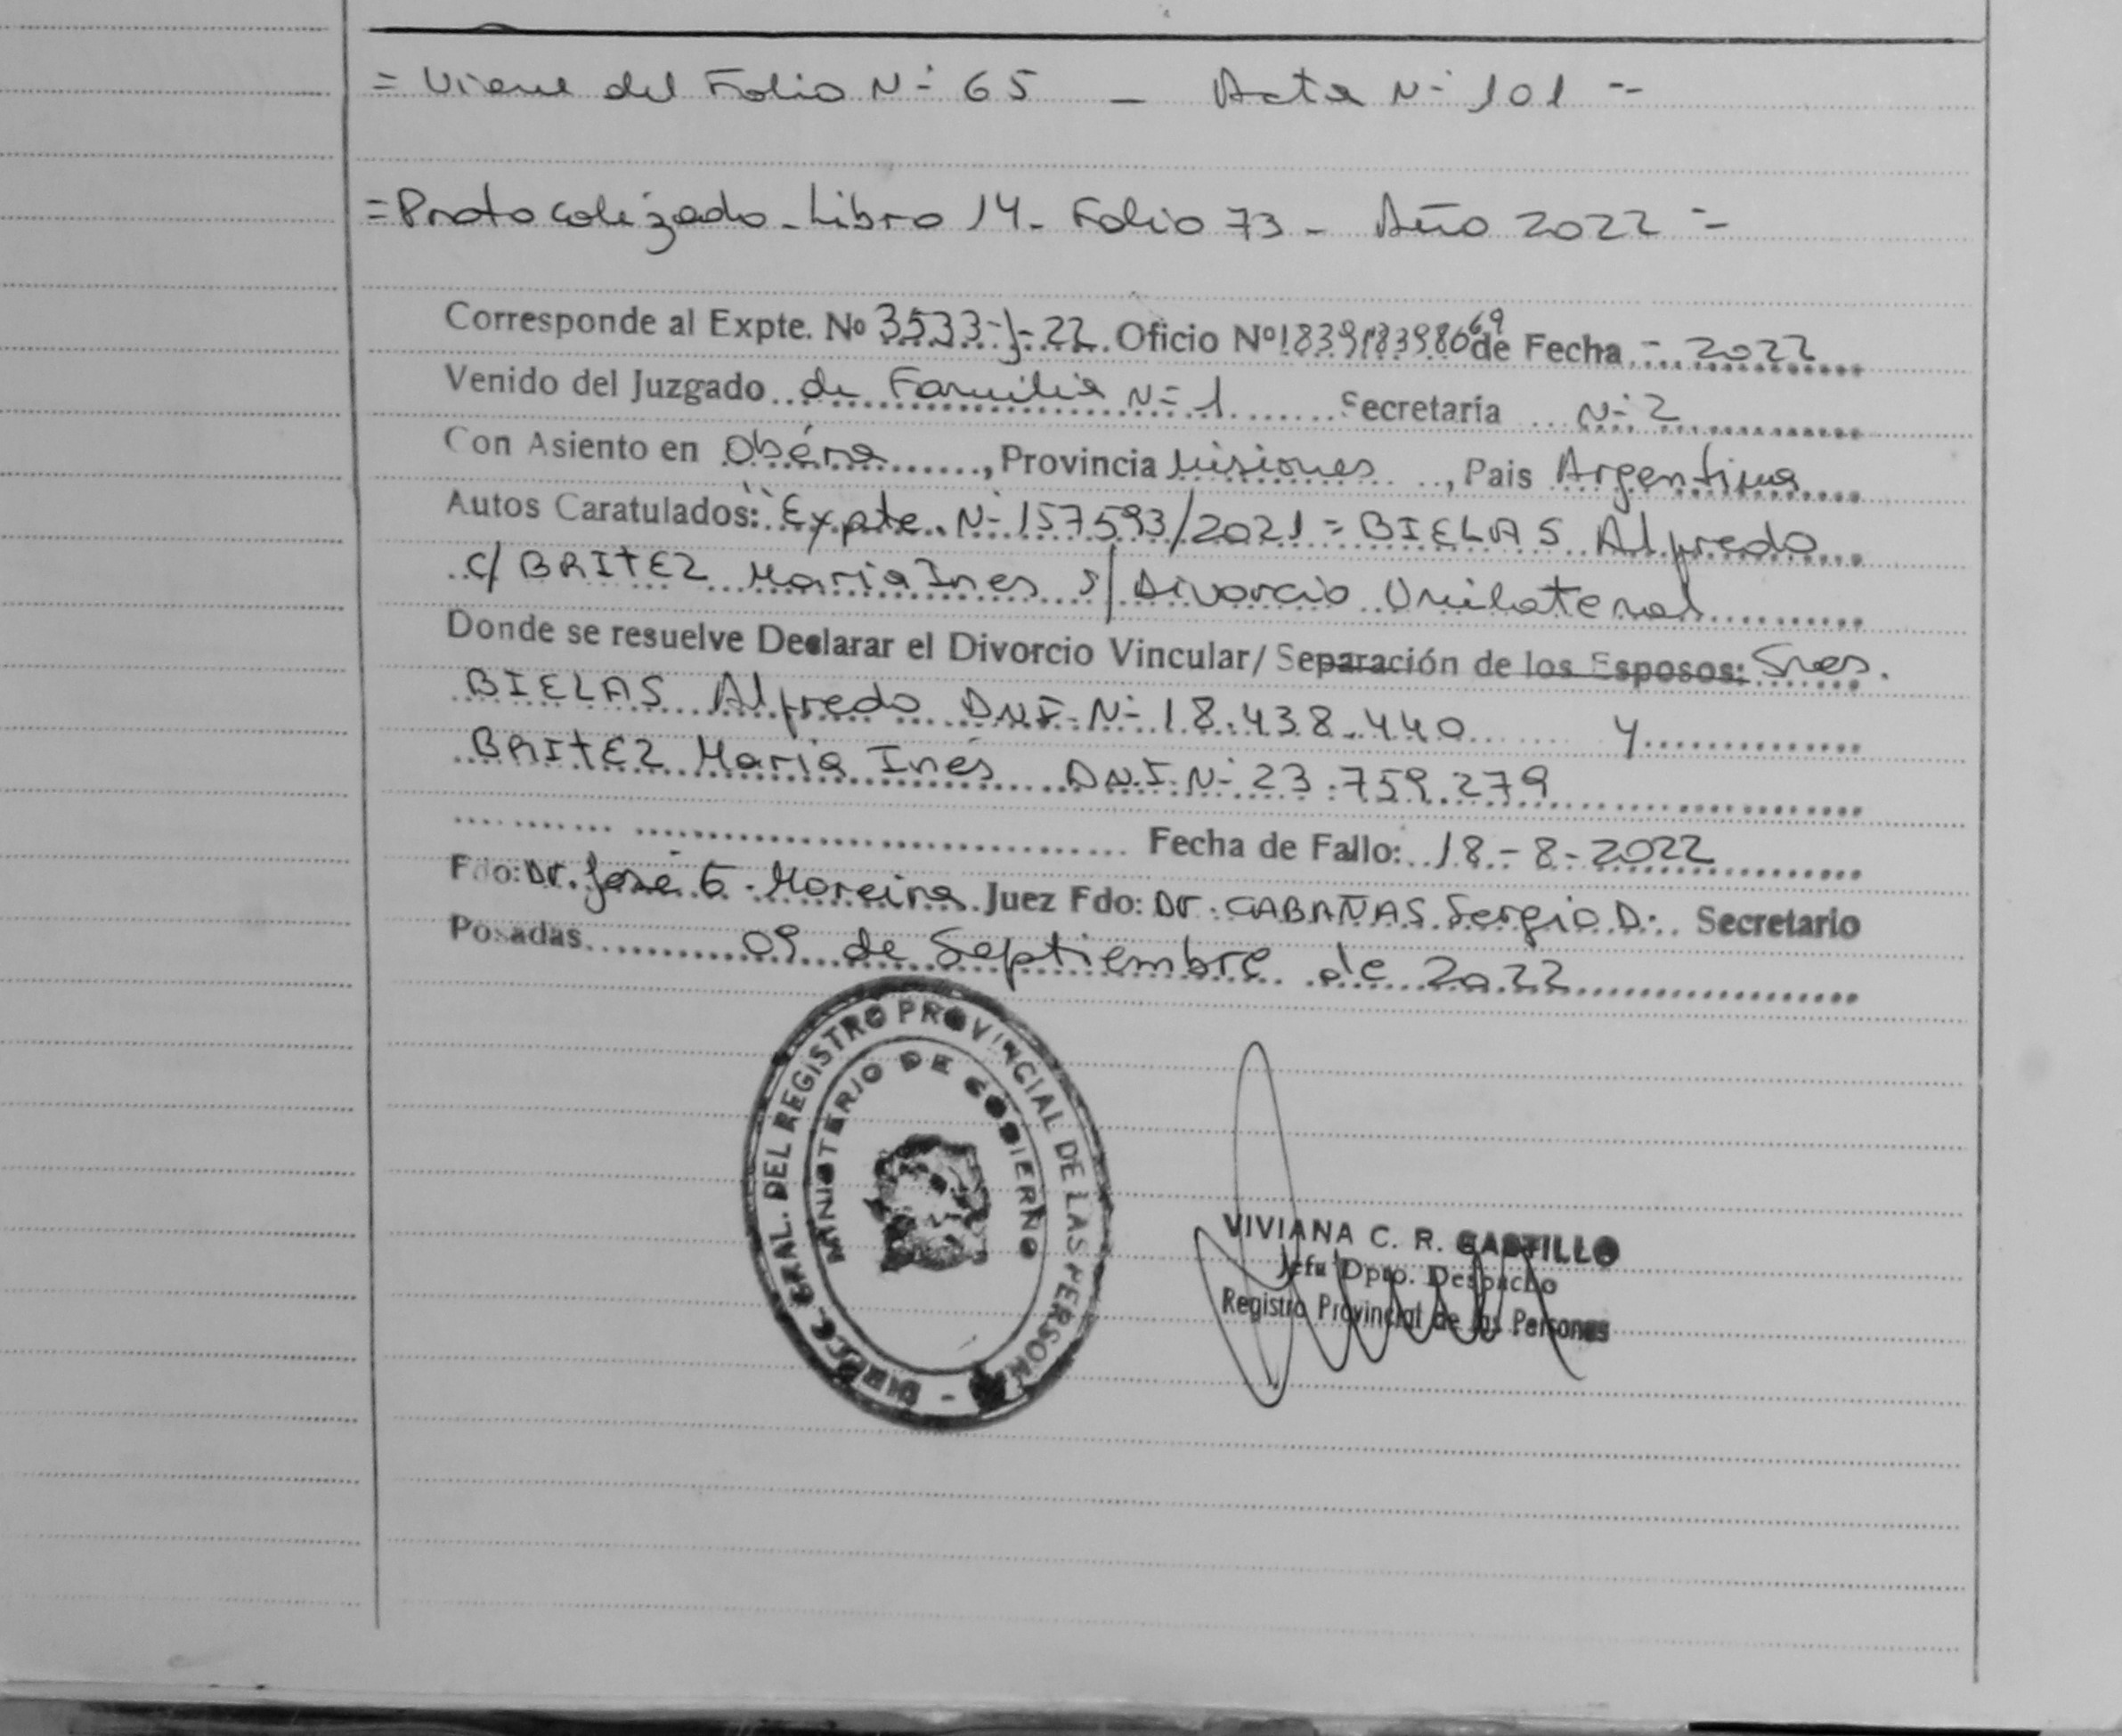 = Viene del Folio Nº 65 - Acta Nº 101 =
= Protocolizado - Libro 14 - Folio 73 - Año 2022 =
Corresponde al Expte. Nº 3533-J-22. Oficio Nº de Fecha - 2022
Venido del Juzgado de Familia Nº 1 Secretaría Nº 2
Con Asiento en Oberá, Provincia Misiones, Pais Argentina
Autos Caratulados: "Expte. Nº 157593/2021 = BIELAS Alfredo
c/ BRITEZ Maria Ines s/ Divorcio Unilateral
Donde se resuelve Declarar el Divorcio Vincular/ Separación de los Esposos: Sres.
BIELAS Alfredo DNI Nº 18.438.440 y
BRITEZ Maria Inés D.N.I. Nº 23.759.279
Fecha de Fallo: 18-8-2022
Fdo: Dr. José G. Moreira Juez Fdo: Dr. CABAÑAS Sergio D. Secretario
Posadas 09 de Septiembre de 2022
DIRECC. GRAL. DEL REGISTRO PROVINCIAL DE LAS PERSONAS -
MINISTERIO DE GOBIERNO
VIVIANA C. R. CASTILLO
Jefa Dpto. Despacho
Registro Provincial de las Personas